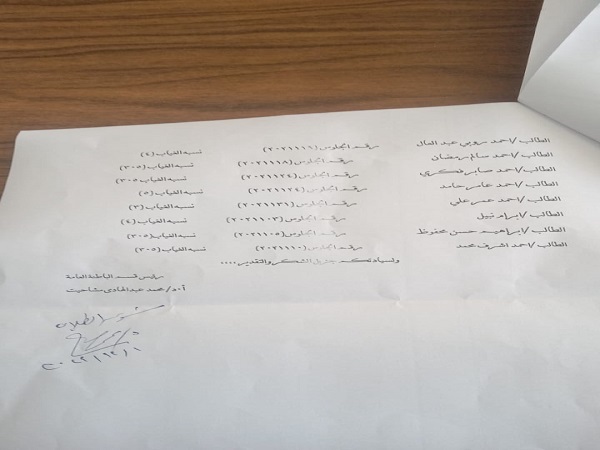 الطالب/احمد روبي عبد العال رقم الجلوس(٢٠٢١١١١) نسبه الغياب(٤)
الطالب/احمد سالم رمضان رقم الجلوس(٢٠٢١١١٨) نسبه الغياب(٣٠٥)
الطالب/احمد صابر فكري رقم الجلوس(٢٠٢١١٢٤) نسبه الغياب(٣٠٥)
الطالب/احمد عامر حامد رقم الجلوس(٢٠٢١١٢٤) نسبه الغياب(٥)
الطالب/احمد عمر علي رقم الجلوس نسبه الغياب(٣)
الطالب/ابرام نبيل رقم الجلوس(٢٠٢١١٠٣) نسبه الغياب(٤)
الطالب/ابراهيم حسن محفوظ رقم الجلوس(٢٠٢١١٠٥) نسبه الغياب(٣٠٥)
الطالب/احمد اشرف محمد رقم الجلوس(٢٠٢١١١٠) نسبه الغياب(٣٠٥)
ولسيادتكم جزيل الشكر والتقدير....
رئيس قسم الباطنة العامة
أ.د/محمد عبدالهادى مشاحيت
الطلاب